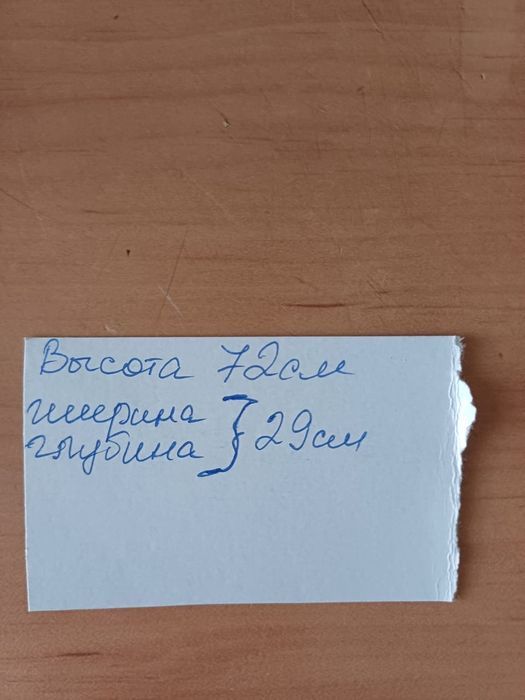 Высота 72см
ширина
глубина } 29см